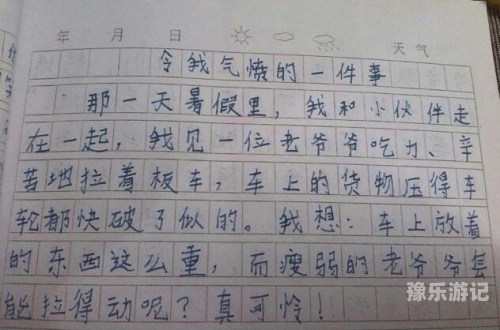 年 月 日 天气
令我气愤的一件事
那一天暑假里，我和小伙伴走
在一起，我见一位老爷爷吃力、辛
苦地拉着板车，车上的货物压得车
轮都快破了似的。我想：车上放着
的东西这么重，而瘦弱的老爷爷怎
能拉得动呢？真可怜！
豫乐游记